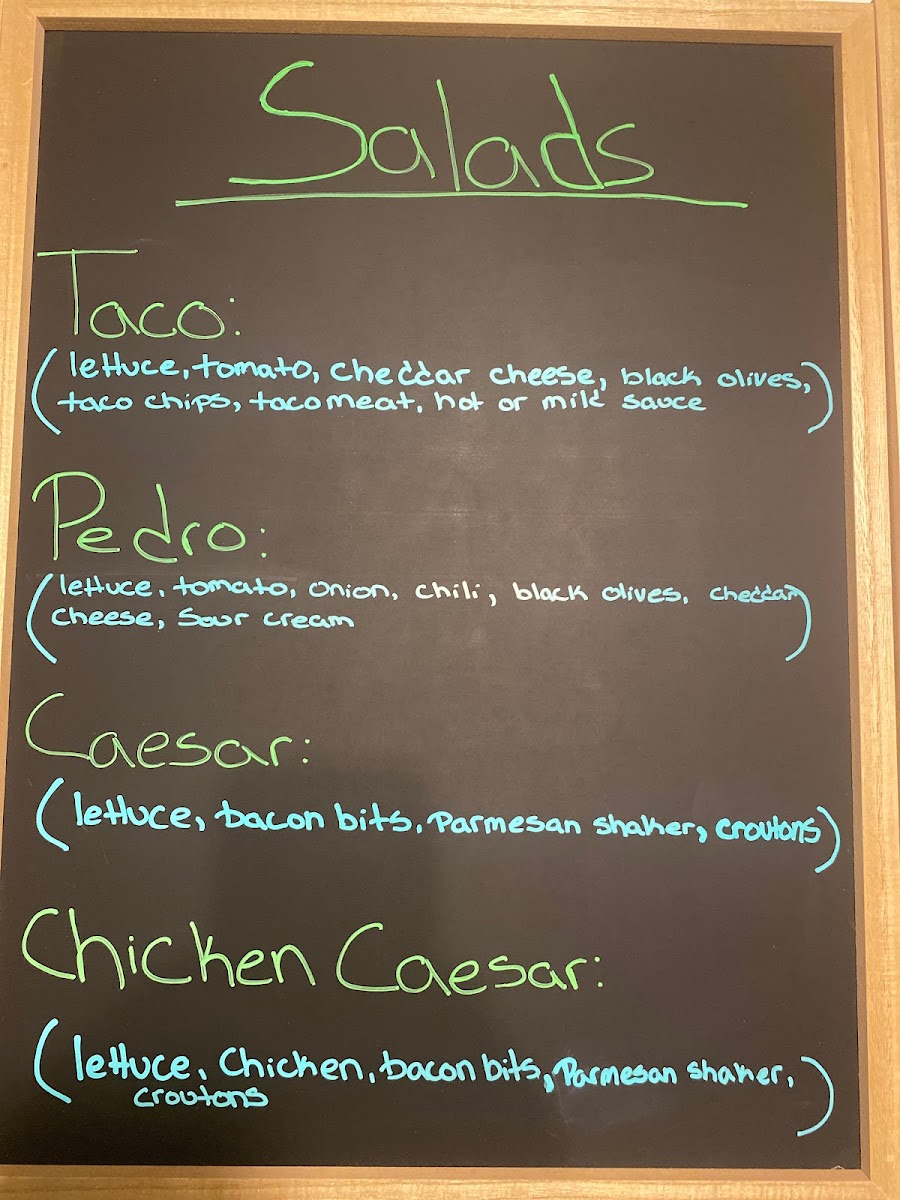 Salads
Taco:
(lettuce, tomato, cheddar cheese, black olives,
taco chips, taco meat, hot or mild sauce)
Pedro:
(lettuce, tomato, onion, chili, black olives, cheddar
cheese, sour cream)
Caesar:
(lettuce, bacon bits, Parmesan shaker, croutons)
Chicken Caesar:
(lettuce, Chicken, bacon bits, Parmesan shaker,
croutons)